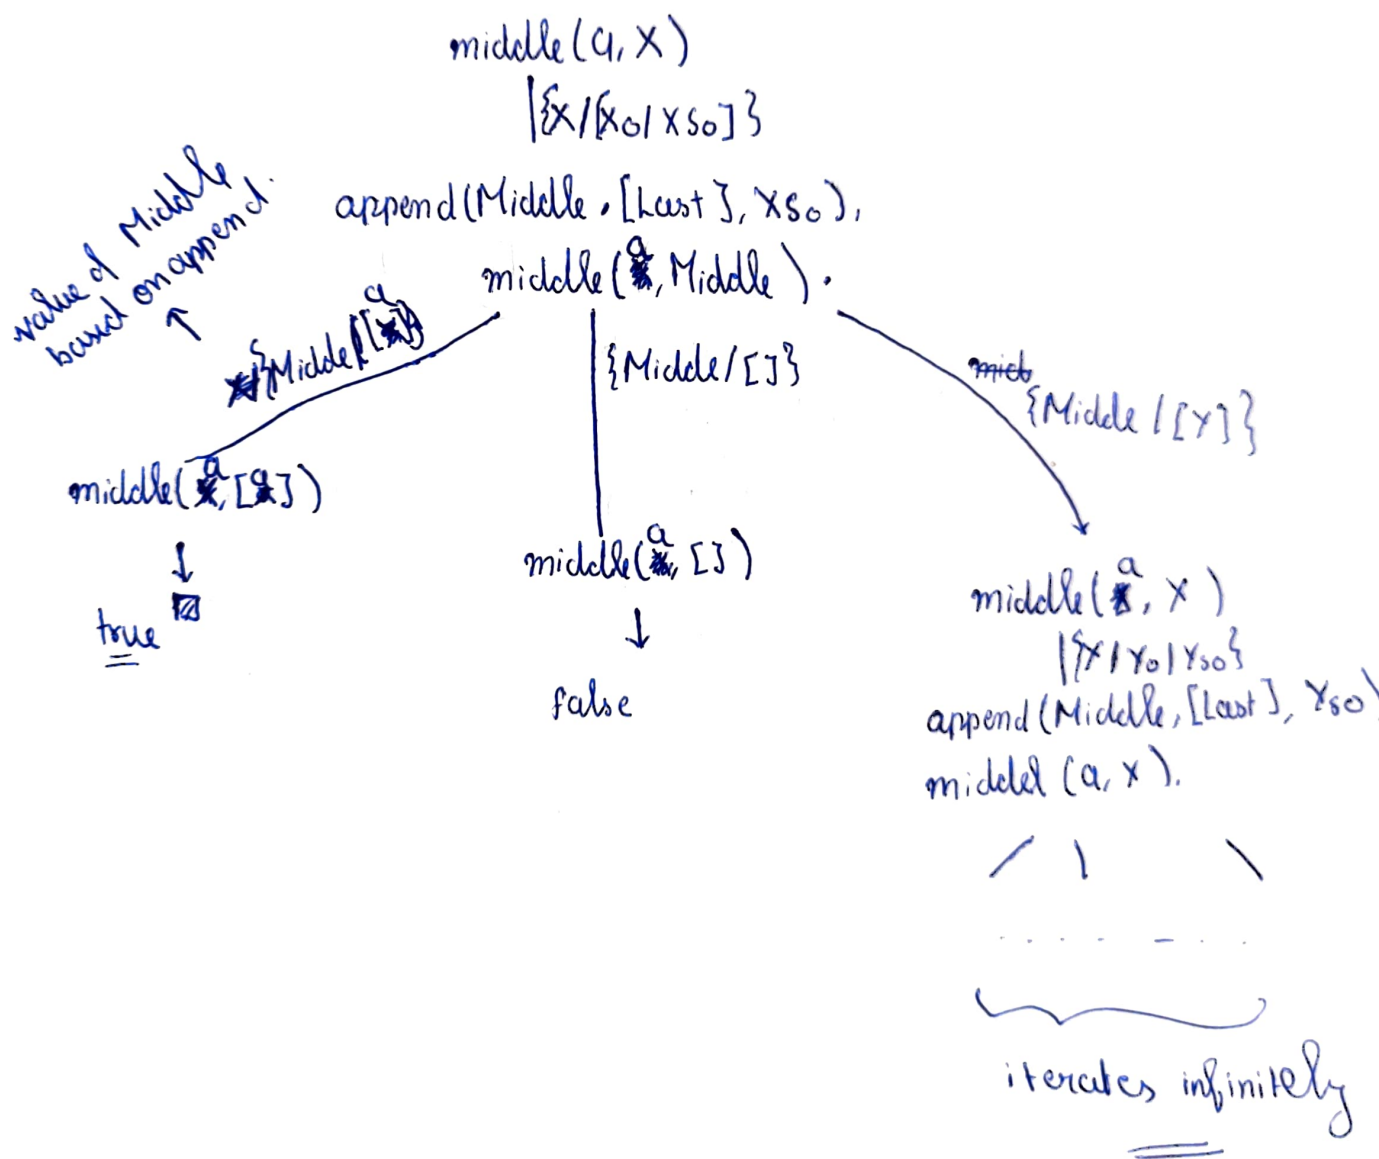 middle(a, X)
|{X/[X0/XS0]}
value of Middle
based on append.
append(Middle, [Last], XS0),
middle(a, Middle).
{Middle/[a]}
{Middle/[]}
mid
{Middle/[Y]}
middle(a, [a])
middle(a, [])
true
false
middle(a, X)
|{X/Y0/YS0}
append(Middle, [Last], YS0)
middel (a, X).
iterates infinitely